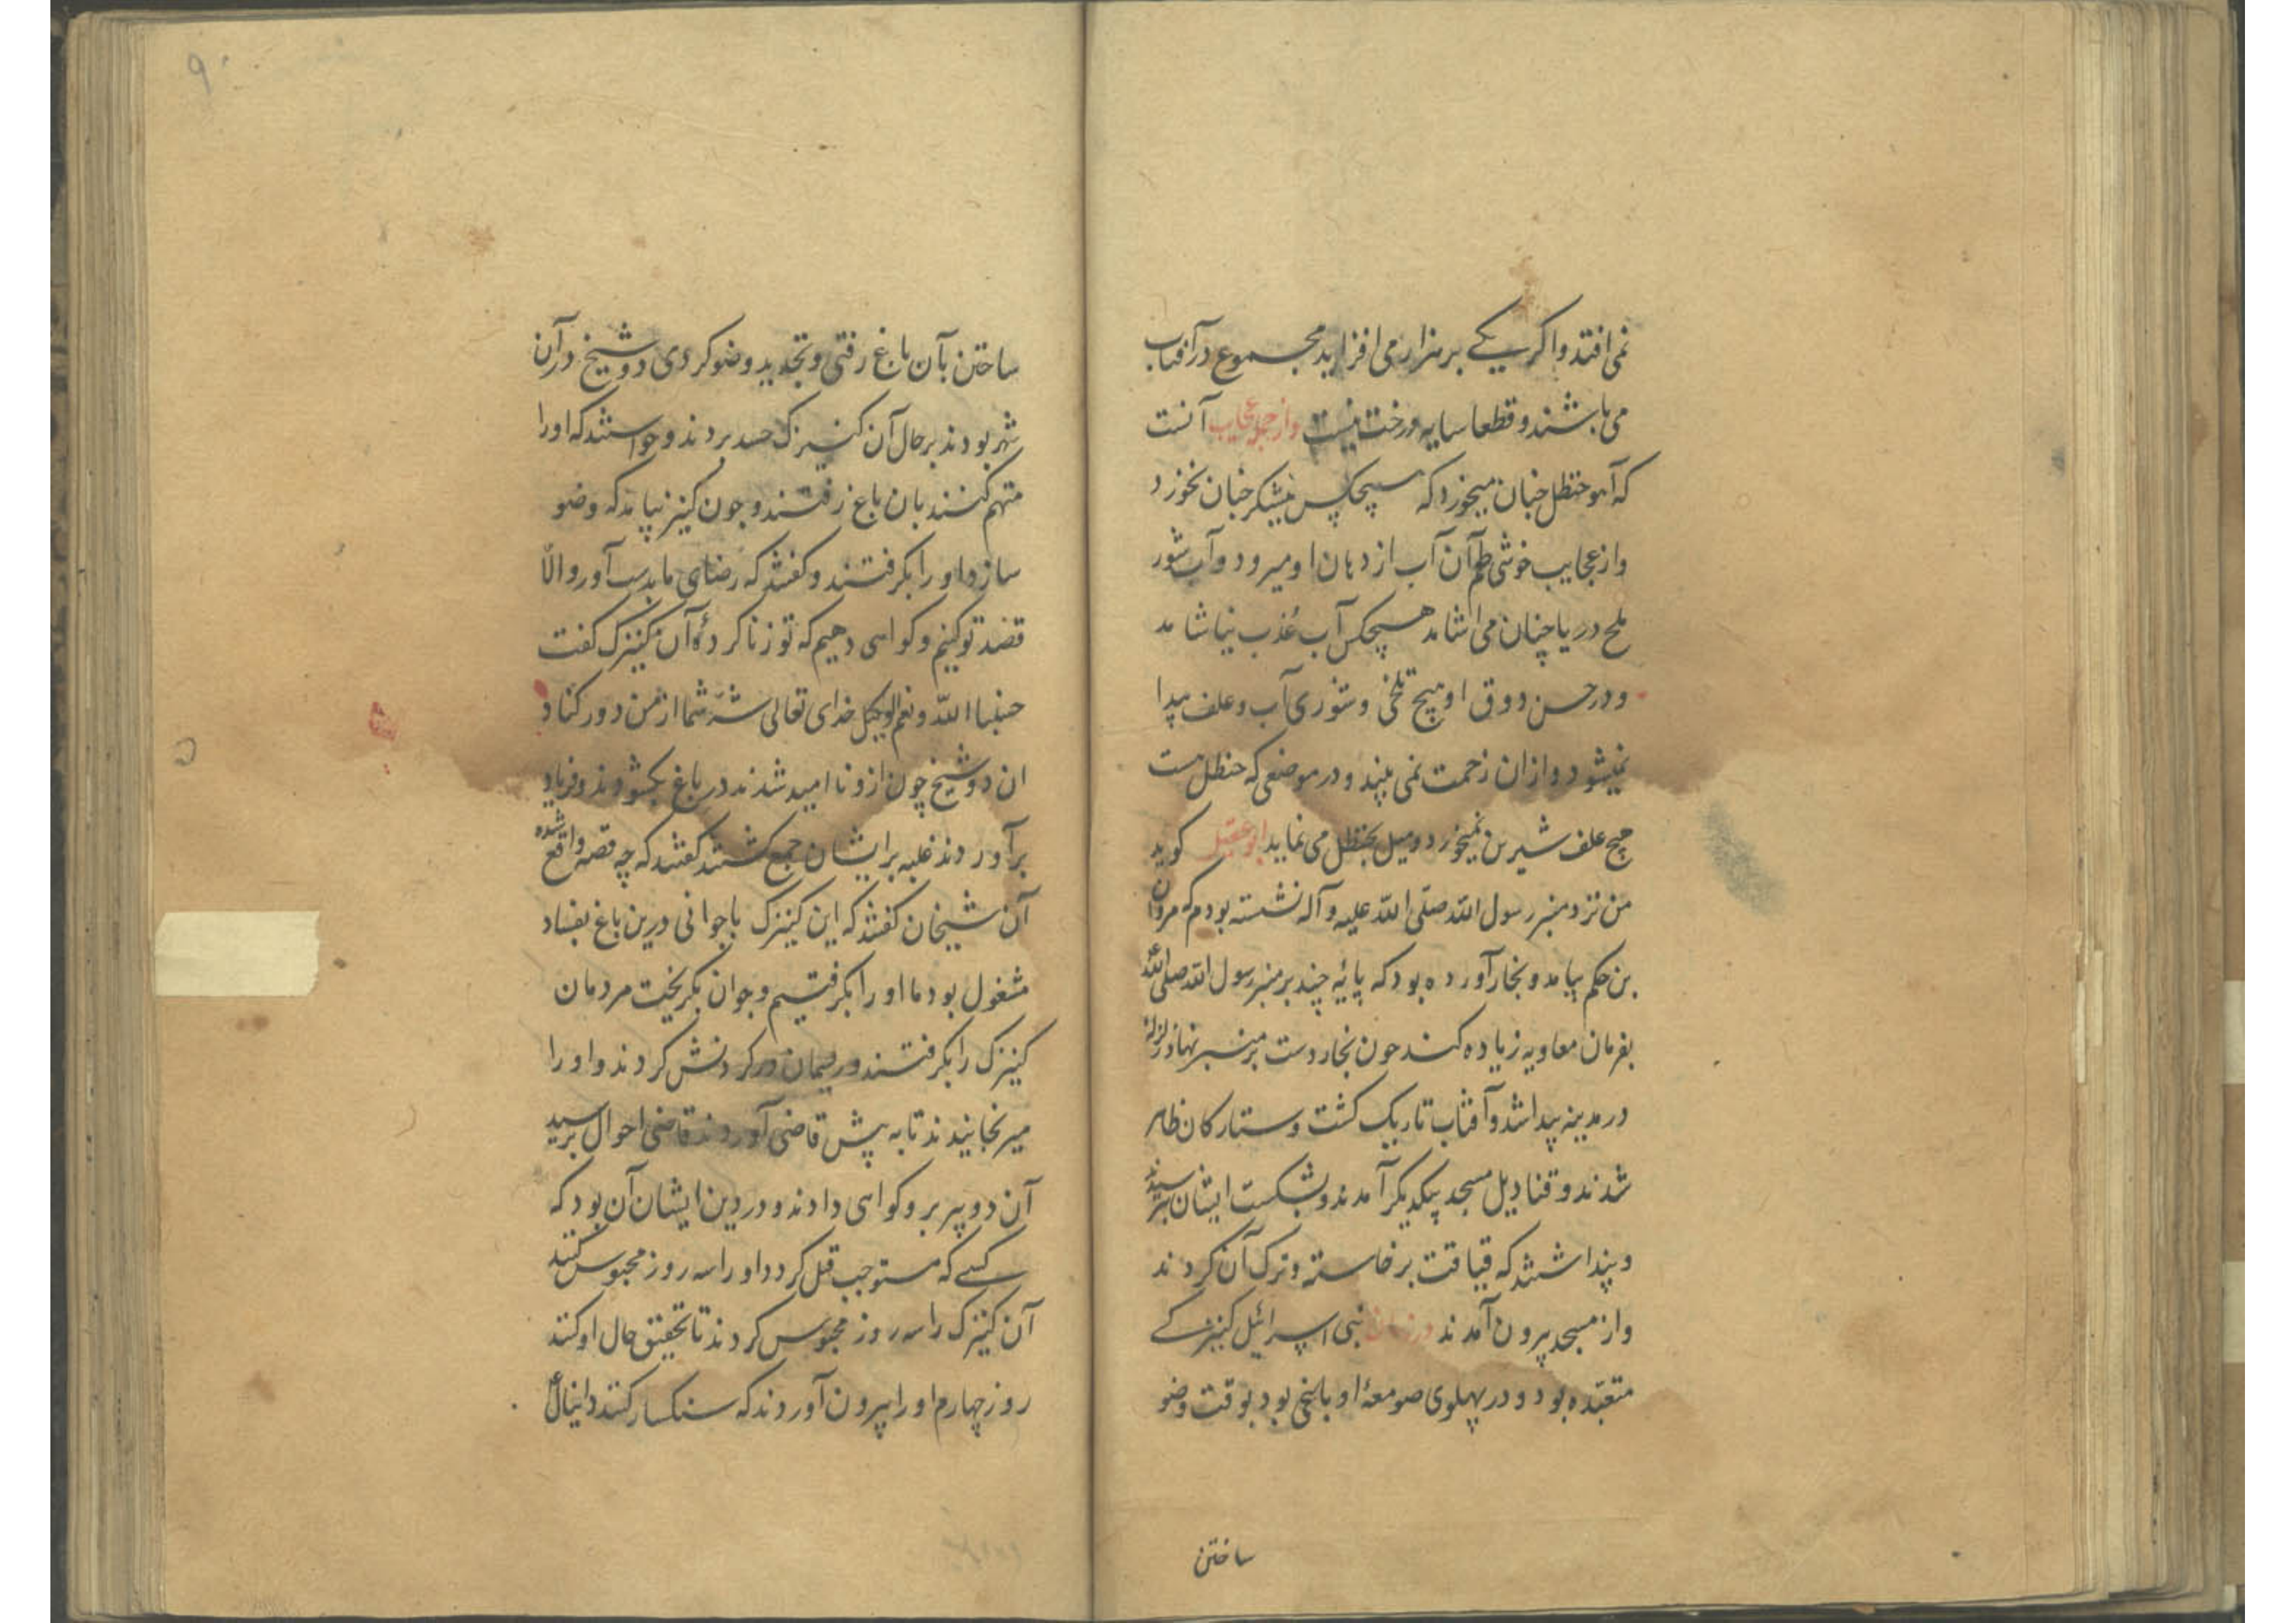 نمی افتد و اکر یکے بر هزار می افزاید مجموع در آفتاب
می باشند و قطعا سایه درخت نیست واز جمله عجایب آنست
که آهو حنظل چنان میخورد که هیچکس نیشکر چنان نخورد
واز عجایب خوشی طعم آن آب از دهان او میرود و آب شور
ملح دریا چنان می اشامد هیچکس آب عُذب نیاشامد
و در حسن ذوق او هیچ تلخی و شوری آب و علف پیدا
نمیشود و ازان زحمت نمی بیند و در موضعی که حنظل هست
هیچ علف شیرین نمیخورد و میل بحنظل می نماید ابو عقیل کوید
من نزد منبر رسول الله صلّی الله علیه و آله نشسته بودم که مروان
بن حکم بیامد و نجار آورده بود که پایهٔ چند بر منبر رسول الله صلی الله
بفرمان معاویه زیاده کند چون نجار دست بر منبر نهاد زلزلهٔ
در مدینه پیدا شد و آفتاب تاریک کشت و ستارکان ظاهر
شدند و قنادیل مسجد بیکدیکر آمدند و بشکست ایشان بترسیدند
و پنداشتند که قیامت برخاسته و ترک آن کردند
واز مسجد بیرون آمدند در زمان بنی اسرائیل کنیزکے
متعبّده بود و در پهلوی صومعهٔ او باغی بود بوقت وضو
ساختن
ساختن بآن باغ رفتی و تجدید وضو کردی دو شیخ در آن
شهر بودند بر حال آن کنیزک حسد بردند و خواستند که او را
متهم کنند بان باغ رفتند و چون کنیز بیامد که وضو
سازد او را بکرفتند و کفتند که رضای ما بدست آور و الّا
قصد تو کنیم و کواهی دهیم که تو زنا کردهٔ آن کنیزک کفت
حسبنا الله و نعم الوکیل خدای تعالی شرّ شما از من دور کناد
ان دو شیخ چون ازو ناامید شدند در باغ بکشودند و فریاد
برآوردند غلبه بر ایشان جمع کشتند کفتند که چه قصه واقع شده
آن شیخان کفتند که این کنیزک با جوانی درین باغ بفساد
مشغول بود ما او را بکرفتیم و جوان بکریخت مردمان
کنیزک را بکرفتند و ریسمان در کردنش کردند و او را
میرنجانیدند تا به پیش قاضی آوردند قاضی احوال پرسید
آن دو پیر برو کواهی دادند و در دین ایشان آن بود که
کسے که مستوجب قتل کردد او را سه روز محبوس کنند
آن کنیزک را سه روز محبوس کردند تا تحقیق حال او کنند
روز چهارم او را بیرون آوردند که سنکسار کنند دانیال